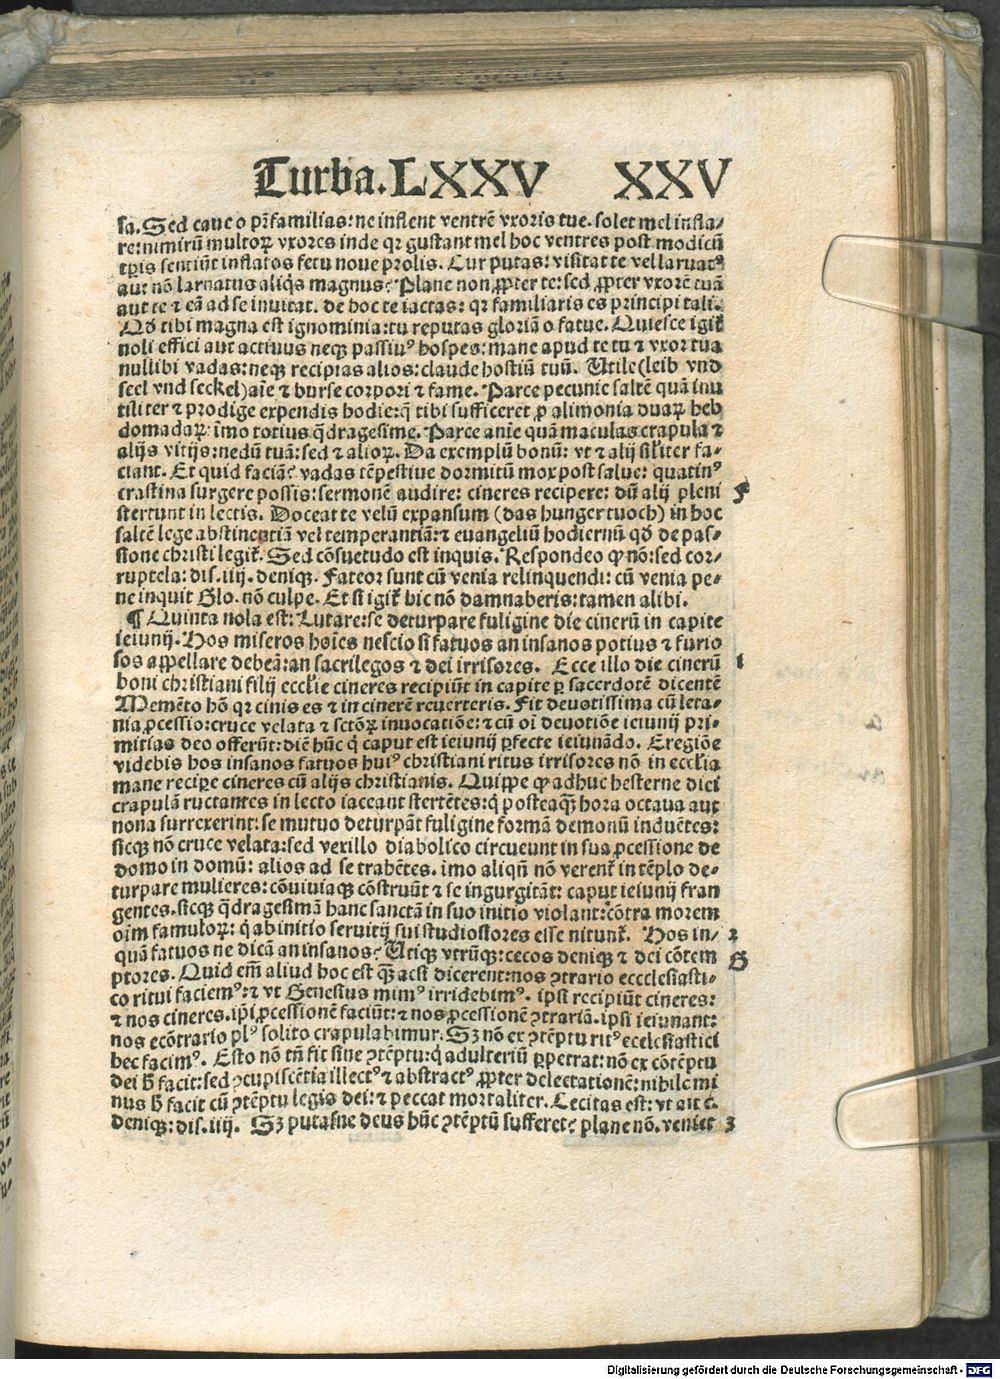 Turba. LXXV XXV
sa. Sed caue o pr̄familias: ne inflent ventrē vxoris tue. solet mel infla⸗
re: nimirū multoꝝ vxores inde qꝛ gustant mel hoc ventres post modicū
tꝑis sentiūt inflatos fetu noue prolis. Cur putas: visitat te vel laruatꝰ
aut nō laruatus aliq̄s magnus? Plane non ꝓpter te: sed ꝓpter vxorē tuā
aut te ⁊ eā ad se inuitat. de hoc te iactas: qꝛ familiaris es principi tali.
Qđ tibi magna est ignominia: tu reputas gloriā o fatue. Quiesce igit̄
noli effici aut actiuus neqꝫ passiuꝰ hospes: mane apud te tu ⁊ vxor tua
nullibi vadas: neqꝫ recipias alios: claude hostiū tuū. Utile (leib vnd
seel vnd seckel) aīe ⁊ burse corpori ⁊ fame. Parce pecunie saltē quā inu
tiliter ⁊ prodige expendis hodie: q̄ tibi sufficeret ꝓ alimonia duaꝝ heb
domadaꝝ: īmo totius q̄dragesime. Parce anīe quā maculas crapula ⁊
alijs vitijs: nedū tuā: sed ⁊ alioꝝ. Da exemplū bonū: vt ⁊ alij sil̄iter fa⸗
ciant. Et quid faciā? vadas tēpestiue dormitū mox post salue: quatinꝰ
crastina surgere possis: sermonē audire: cineres recipere: dū alij pleni F
stertunt in lectis. Doceat te velū expansum (das hungertuoch) in hoc
saltē lege abstinentiā vel temperantiā: ⁊ euangeliū hodiernū qđ de pas⸗
sione christi legit̄. Sed cōsuetudo est inquis. Respondeo ꝙ nō: sed cor⸗
ruptela: dis. iiij. deniqꝫ. Fateor sunt cū venia relinquendi: cū venia pe⸗
ne inquit Glo. nō culpe. Et si igit̄ hic nō damnaberis: tamen alibi.
¶ Quinta nola est: Lutare: se deturpare fuligine die cinerū in capite
ieiunij. Hos miseros hoīes nescio si fatuos an insanos potius ⁊ furio
sos appellare debeā: an sacrilegos ⁊ dei irrisores. Ecce illo die cinerū 1
boni christiani filij eccl̄ie cineres recipiūt in capite ꝑ sacerdotē dicentē
Memēto hō qꝛ cinis es ⁊ in cinerē reuerteris. Fit deuotissima cū leta⸗
nia ꝓcessio: cruce velata ⁊ sctōꝝ inuocatiōe: ⁊ cū oī deuotiōe ieiunij pri⸗
mitias deo offerūt: diē hūc q̄ caput est ieiunij ꝑfecte ieiunādo. E regiōe
videbis hos insanos fatuos huiꝰ christiani ritus irrisores nō in eccl̄ia
mane recipe cineres cū alijs christianis. Quippe ꝙ adhuc hesterne diei
crapulā ructantes in lecto iaceant stertētes: q̄ posteaꝗ̄ hora octaua aut
nona surrexerint: se mutuo deturpāt fuligine formā demonū induētes:
sicqꝫ nō cruce velata: sed vexillo diabolico circueunt in sua ꝓcessione de
domo in domū: alios ad se trahētes. imo aliqn̄ nō verent̄ in tēplo de⸗
turpare mulieres: cōuiuiaqꝫ cōstruūt ⁊ se ingurgitāt: caput ieiunij fran
gentes. sicqꝫ q̄dragesimā hanc sanctā in suo initio violant: cōtra morem
oīm famuloꝝ: q̄ ab initio seruitij sui studiosiores esse nitunt̄. Hos in⸗ 2
quā fatuos ne dicā an insanos? Utiqꝫ vtrūqꝫ: cecos deniqꝫ ⁊ dei cōtem G
ptores. Quid em̄ aliud hoc est ꝗ̄ acsi dicerent: nos ꝯtrario eccclesiasti⸗
co ritui faciemꝰ: ⁊ vt Genesius mimꝰ irridebimꝰ. ipsi recipiūt cineres:
⁊ nos cineres. ip̄i ꝓcessionē faciūt: ⁊ nos ꝓcessionē ꝯtrariā. ipsi ieiunant:
nos ecōtrario plꝰ solito crapulabimur: Sꝫ nō ex ꝯtēptu ritꝰ ecclesiastici
hec facimꝰ. Esto nō tn̄ fit sine ꝯtēptu: q̄ adulteriū ꝑpetrat: nō ex cōtēptu
dei ħ facit: sed ꝯcupiscētia illectꝰ ⁊ abstractꝰ ꝓpter delectationē: nihilc mi
nus ħ facit cū ꝯtēptu legis dei: ⁊ peccat mortaliter. Cecitas est: vt ait c.
deniqꝫ: dis. iiij. Sꝫ putasne deus hūc ꝯtēptū sufferet? plane nō. veniet 3
Digitalisierung gefördert durch die Deutsche Forschungsgemeinschaft - DFG